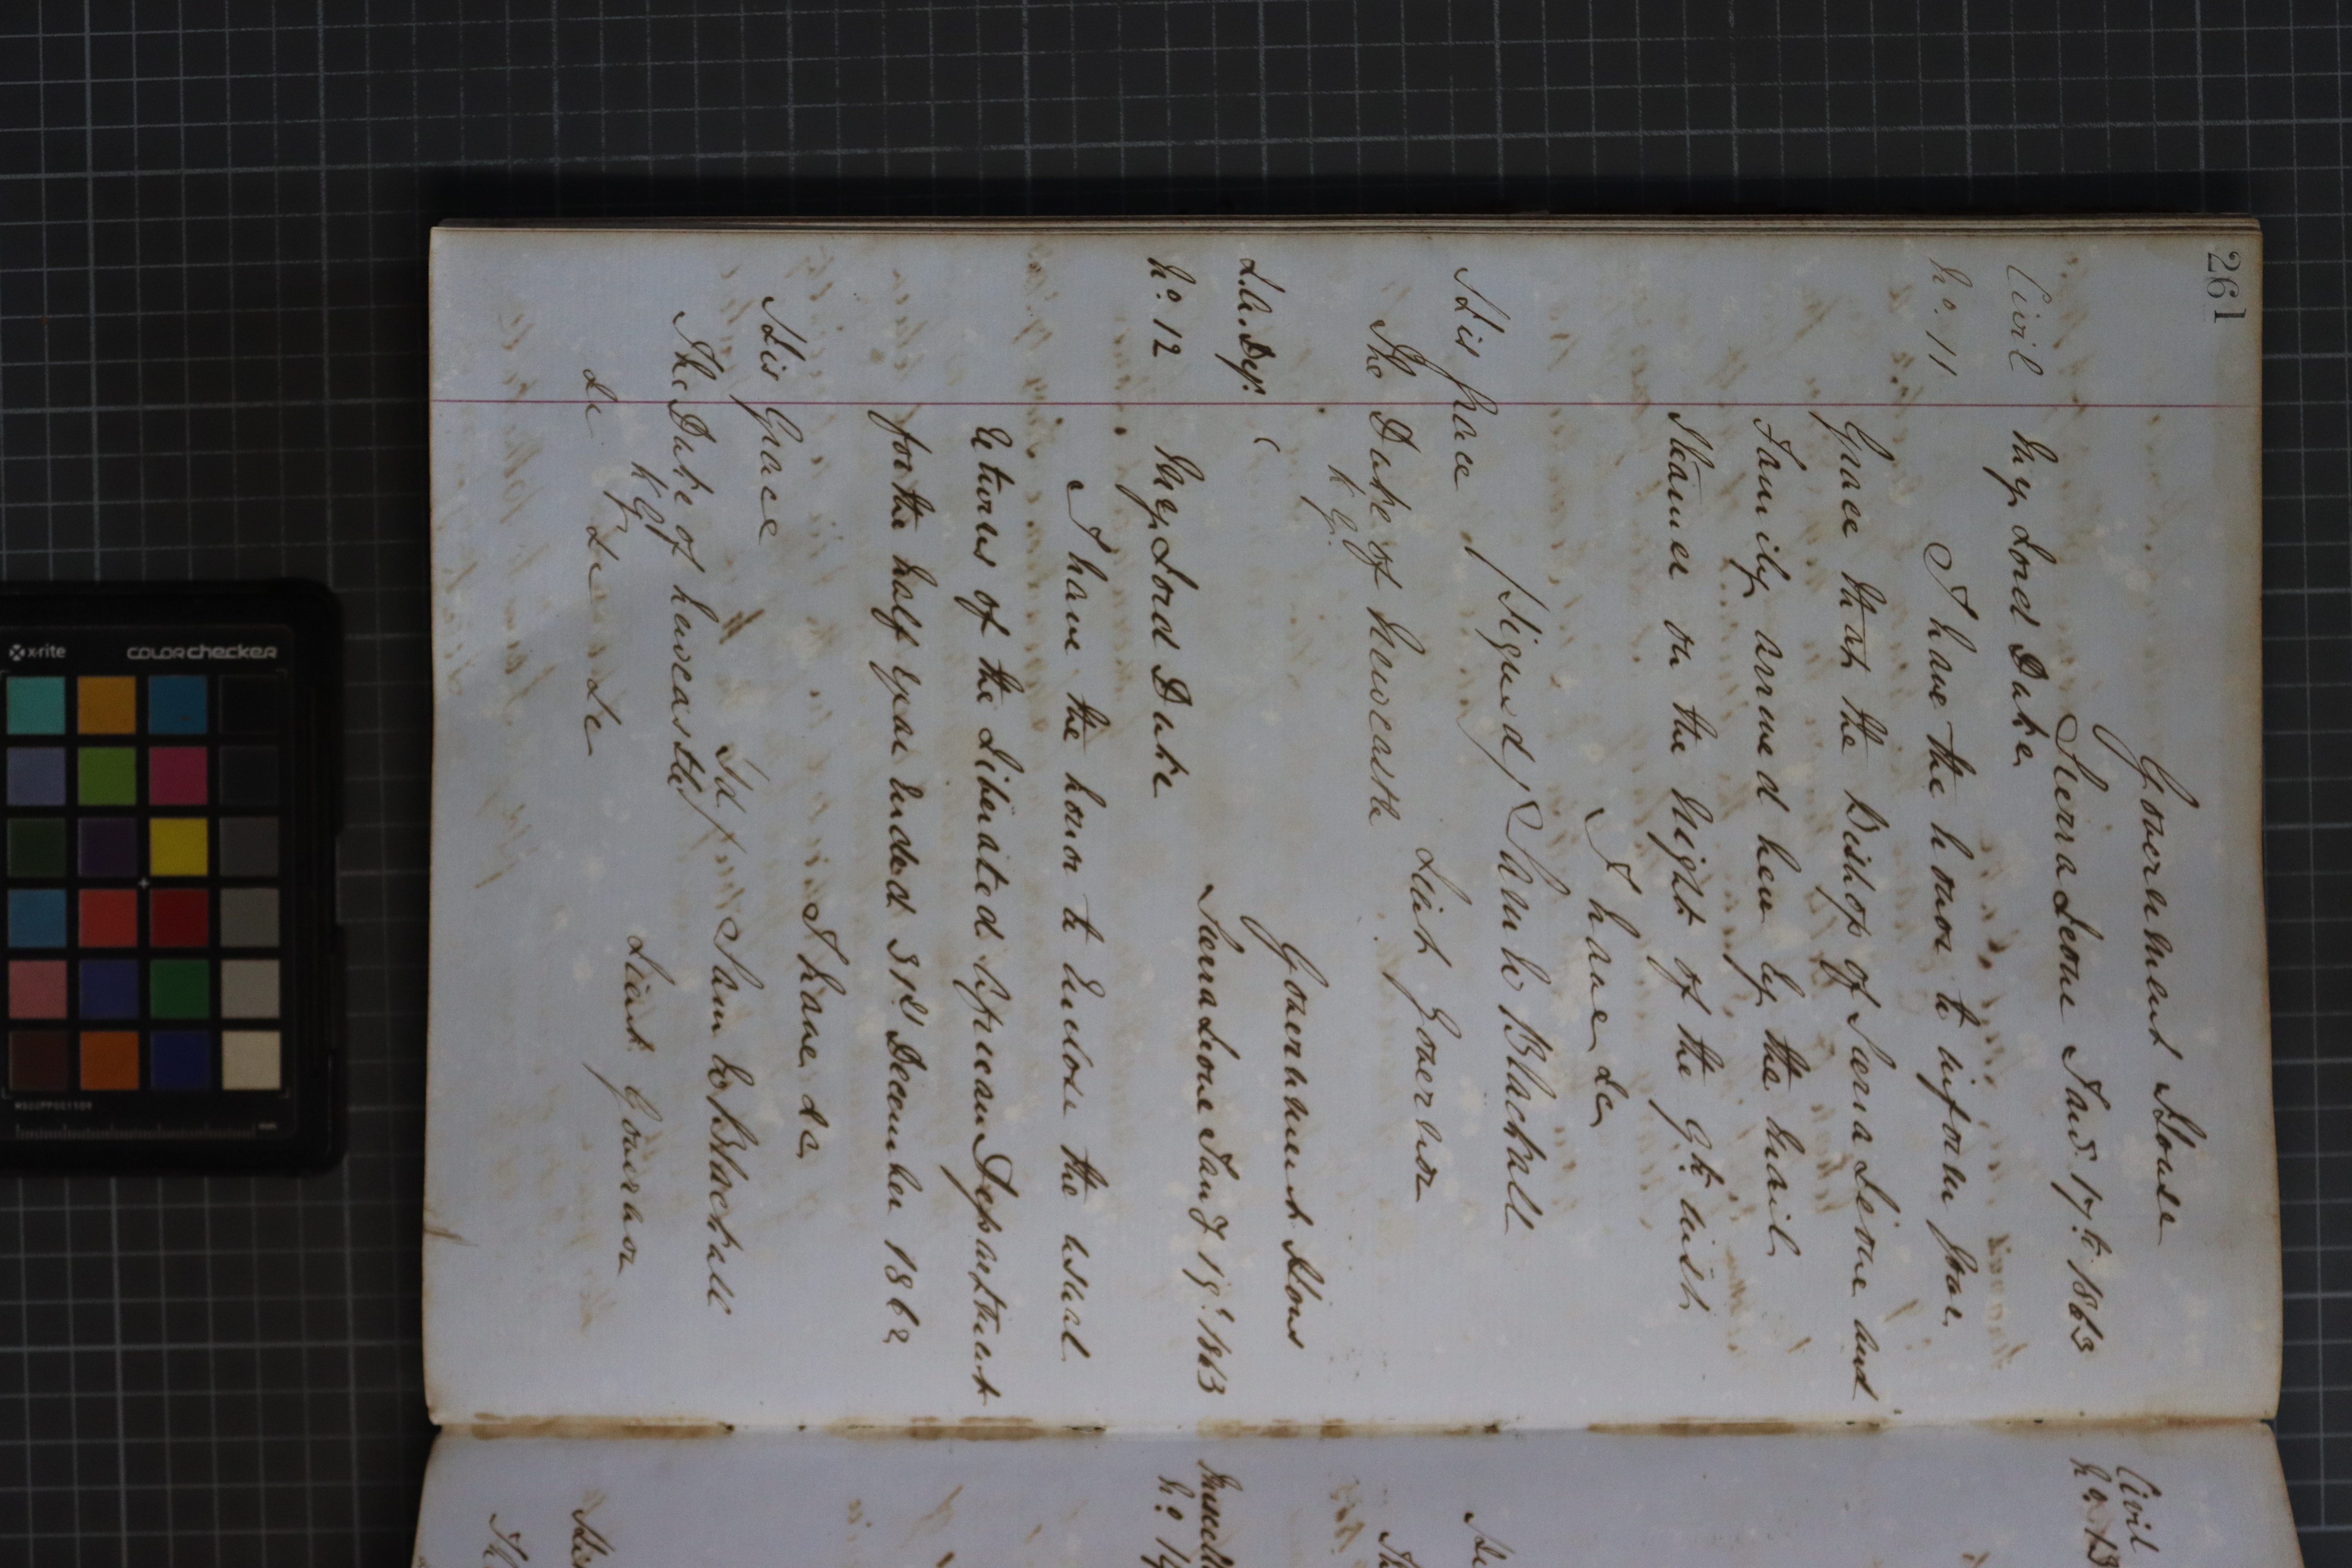 261
Government House
Sierra Leone Jany. 17th 1863
Civil
No. 11
My Lord Duke
I have the honor to inform your
Grace that the Bishop of Sierra Leone and
Family arrived here by the mail
Steamer on the night of the 9th inst
I have &c
(Signed) Sam W Blackall
Lieut Governor
His Grace
The Duke of Newcastle
K.G.
Government House
Sierra Leone Jany 19th 1863
L.A. Dep.
No. 12
My Lord Duke
I have the honor to enclose the usual
Returns of the Liberated African Department
for the half year ended 31st December 1862
I have &c
Sd/ Sam W Blackall
Lieut Governor
His Grace
The Duke of Newcastle
K.G.
&c &c &c
Civil
No. 13
No. 14
x-rite
colorchecker